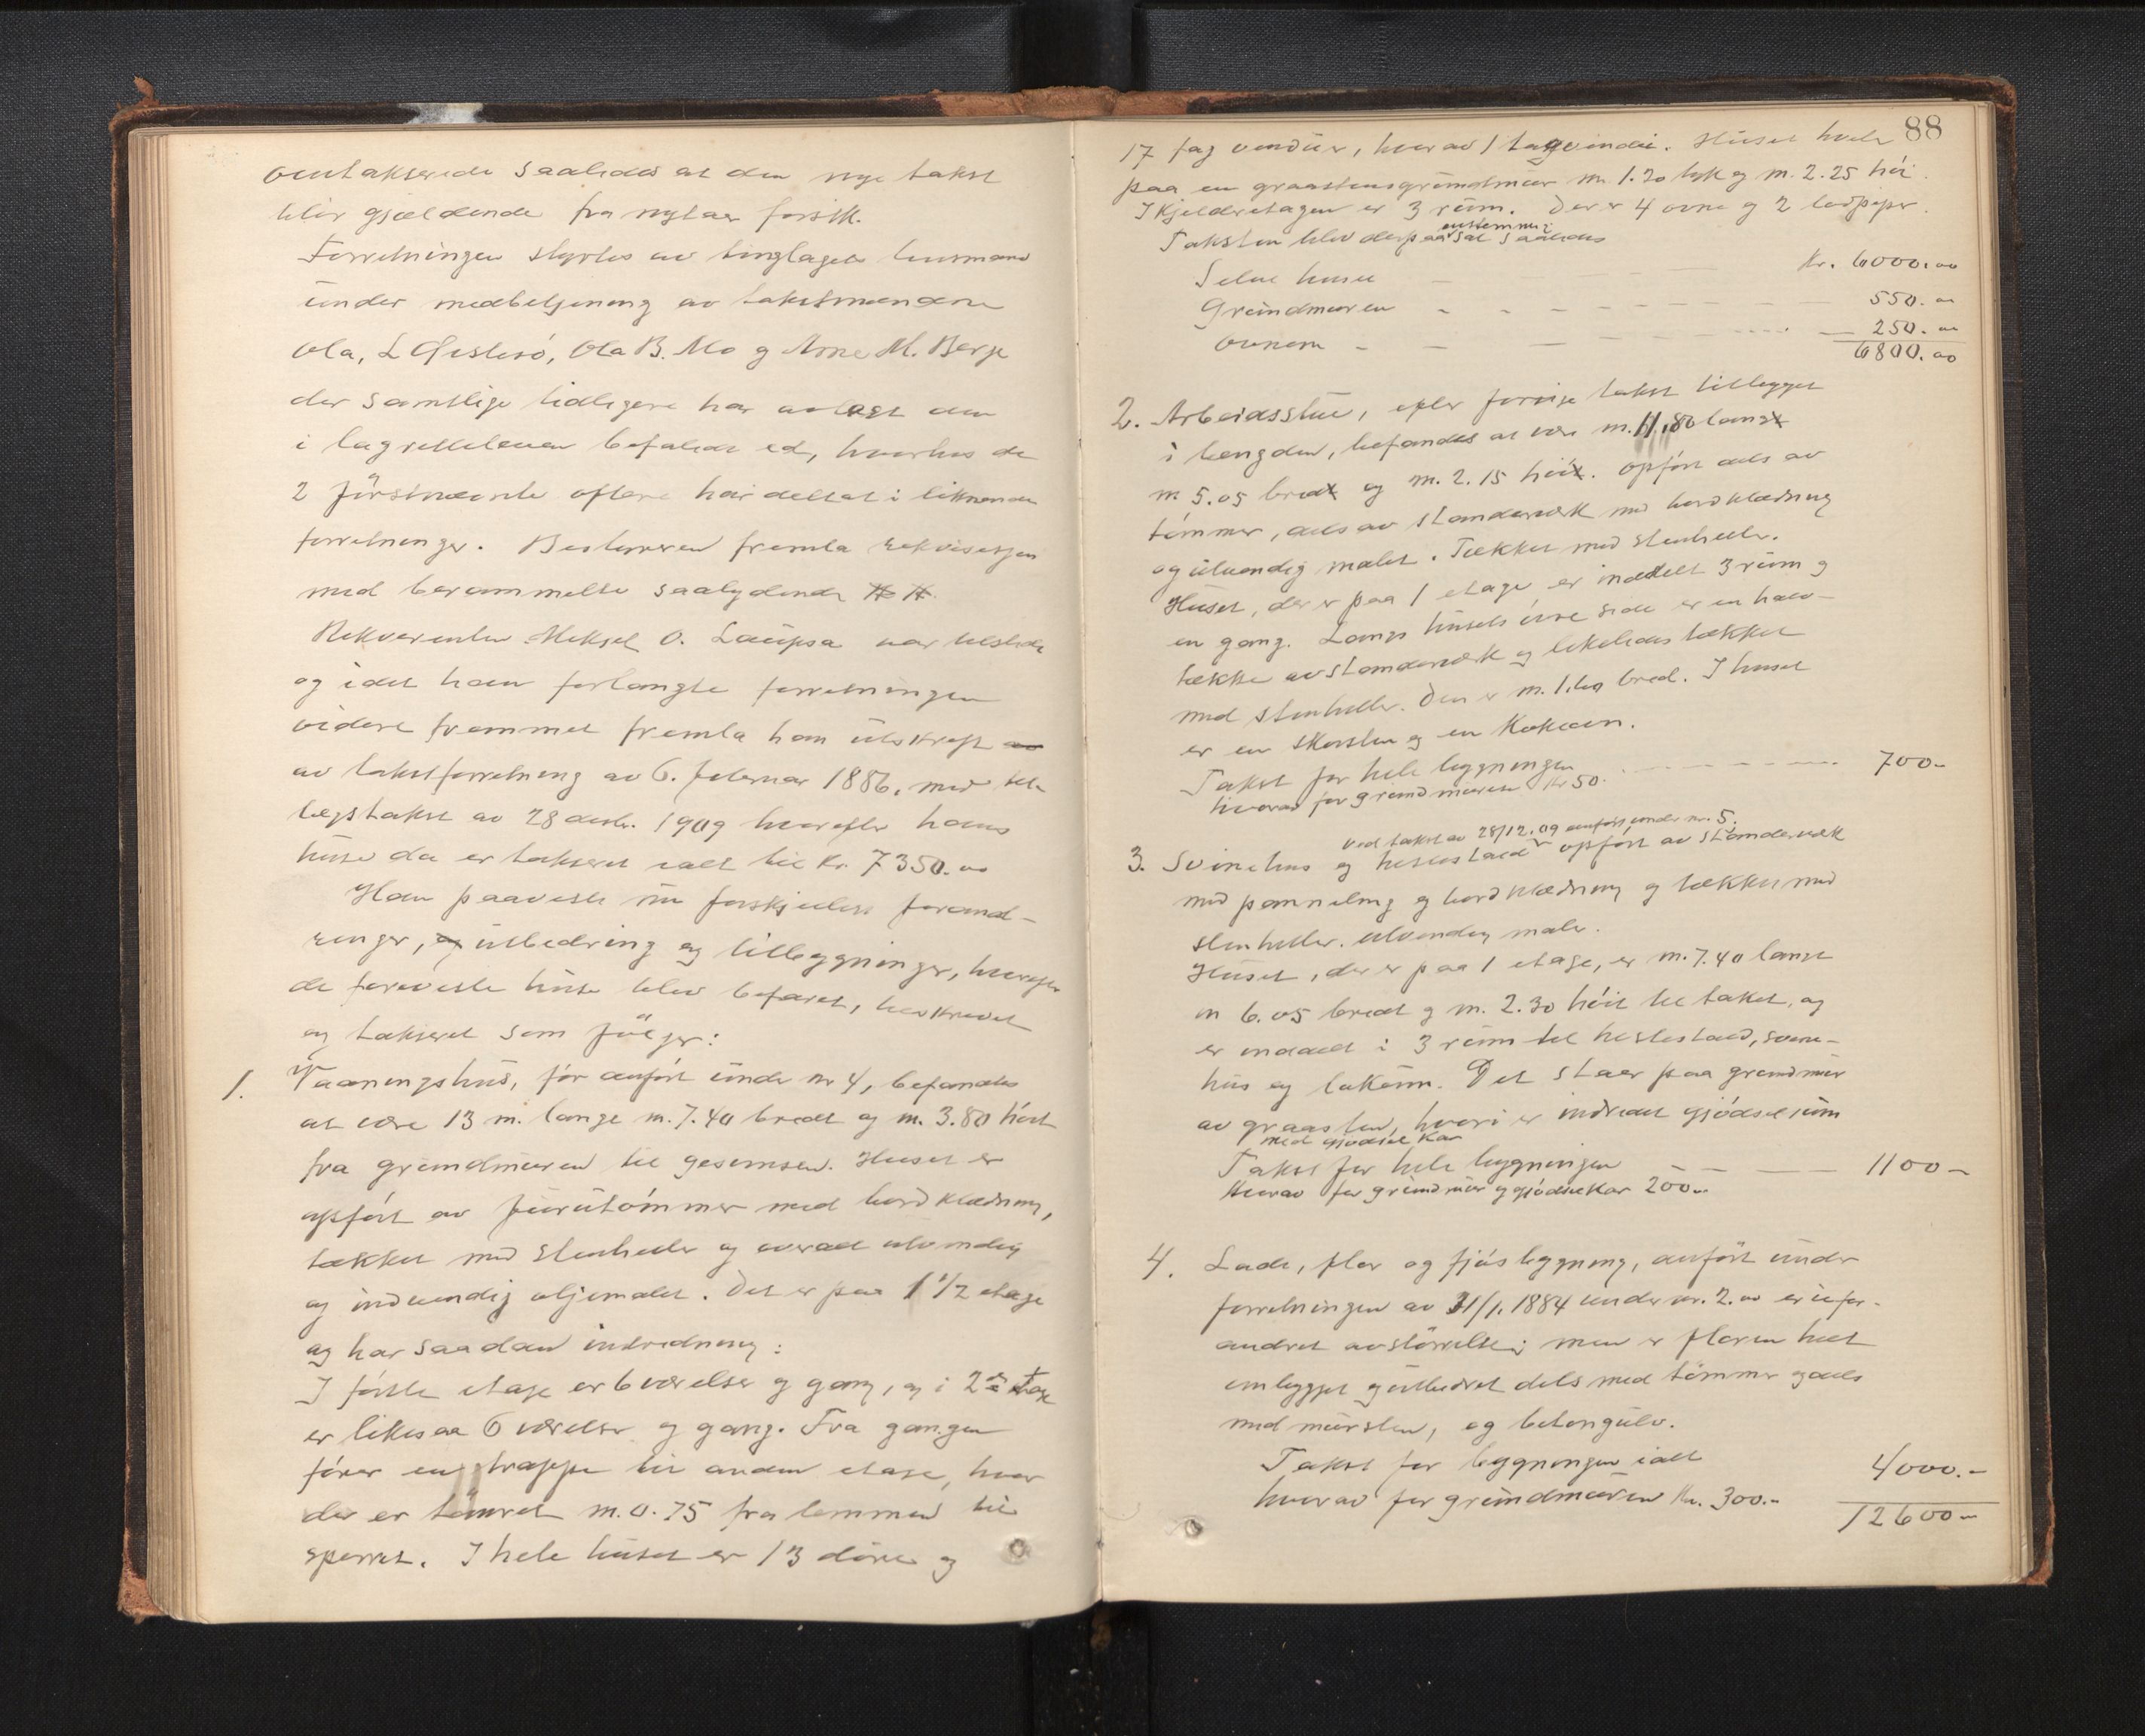 omtakserede saaledes at den nye takst
blir gjældende fra nytaar førstk.
Forretningen styrtes av tinglagets lensmand
under medbetjening av takstmændene
Ola, L Gjeslesø, Ola B. Mo g Arne M. Berge
der samtlige tidligere har avlagt den
i lagretteloven befalede ed, hvorhos de
2 førstnævnte oftere har deltat i liknende
forretninger. Bestyreren fremla rekvisisjon
med berammelse saalydende
Rekvirenten Meksel O. Laupsa var tilstede
og idet han forlangte forretningen
videre fremmet fremla han utskrift
av takstforretning av 6. februar 1886, med til-
lægstakst av 28 desb. 1909 hvorefter hans
huse da er takseret ialt til kr. 7350.00
Han paaviste nu forskjellige forand-
ringer, og utbedring og tilbygninger, hvorefter
de foreviste huse blev befaret, beskrevet
og takseret som følger:
1. Vaaningshus, før anført under nr 4, befandtes
at være 13 m. lange m. 7.40 bredt og m. 3.80 høit
fra grundmuren til gesimsen. Huset er
opført av furutømmer med bordklædning,
tækket med stenheller og overalt utvendig
og indvendig oljemalet. Det er paa 1 1/2 etage
og har saadan indredning:
I første etage er 6 værelser g gang, og i 2den etage
er likesaa 6 værelser g gang. Fra gangen
fører en trappe til anden etase, hvor
der er tømret m. 0.75 fra lemmen til
sperret. I hele huset er 13 døre g
88
17 fag vinduer, hvorav 1 tagvindu. Huset hviler
paa en graastensgrundmur m. 1.20 tyk g m. 2.25 høi.
I kjelderetagen er 3 rum. Der er 4 ovne g 2 lodpiper.
Taksten blev derpaa enstemmig sat saaledes
Selve huset Kr. 6000.00
Grundmuren 550.00
Ovnene 250.00
6800.00
2. Arbeidsstue, efter forrige takst tilbygget
i længden, befandtes at være m. 11.80 langt
m 5.05 bredt og m. 2.15 høit. Opført dels av
tømmer, dels av standerverk med bordklædning
og utvendig malet. Tækket med stenheller.
Huset, der er paa 1 etage er inddelt 3 rum g
en gang. Langs husets øvre side er en halv-
tække av standerverk og likeledes tækket
med stenheller. Den er m. 1.60 bred. I huset
er en skorsten g en kokovn.
Takst for hele bygningen 700-
hvorav for grundmuren kr 50.
ved takst av 28/12.09 anført under nr. 5.
3. Svinehus og hestestald opført av standerverk
med panneling g bordklædning g tækket med
stenheller. Utvendig malet.
Huset, der er paa 1 etage, er m. 7.40 langt
m 6.05 bredt g m. 2.30 høit til taket, og
er inddelt i 3 rum til hestestald, svine-
hus og lokum. Det staar paa grundmur
av graasten, hvori er indredet gjødselrum
med gjødselkar
Takst for hele bygningen 1100-
Hvorav for grundmur g gjødselkar 200.-
4. Lade, flor og fjøsbygning, anført under
forretningen av 31/1. 1884 under nr. 2. er ufor-
andret av størrelse; men er floren helt
ombygget g utbedret dels med tømmer g dels
med mursten, og betongulv.
Takst for bygningen ialt 4000.-
hvorav for grundmuren kr. 300.-
12600-